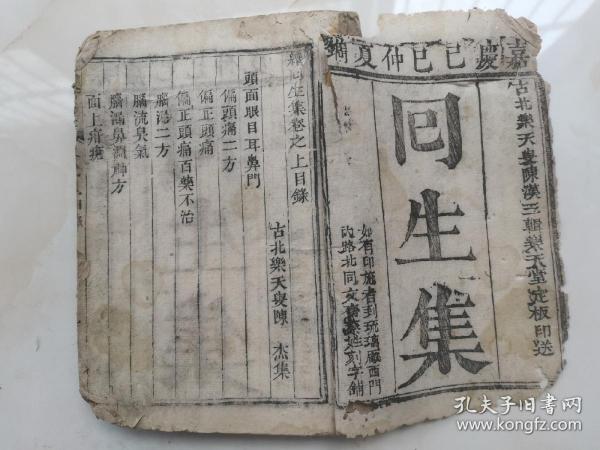 嘉慶己巳仲夏鐫
古北樂天叟陳漢三輯樂天堂定板印送
回生集
如有印施者到琉璃廠西門
内路北同文齋姓刻字鋪
續回生集卷之上目錄
古北樂天叟陳 杰集
頭面眼目耳鼻門
偏頭痛二方
偏正頭痛
偏正頭痛百藥不治
腦瀉二方
腦流臭氣
腦漏鼻淵神方
面上疳瘡
孔夫子旧书网
www.kongfz.com